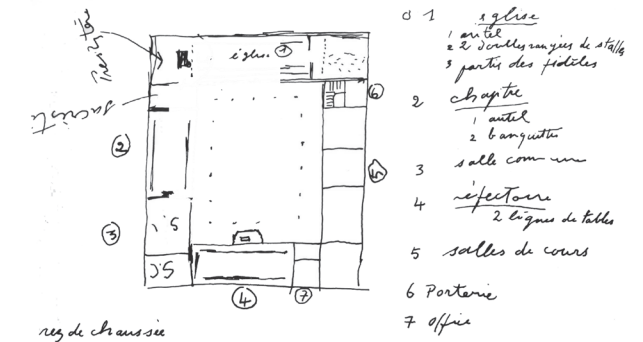 église 1
sacristie
2
3
S.C
4
7
6
5
rez de chaussée
0 1 église
1 autel
2 2 doubles rangées de stalles
3 partie des fidèles
2 chapitre
1 autel
2 banquettes
3 salle commune
4 réfectoire
2 lignes de tables
5 salles de cours
6 Porterie
7 office